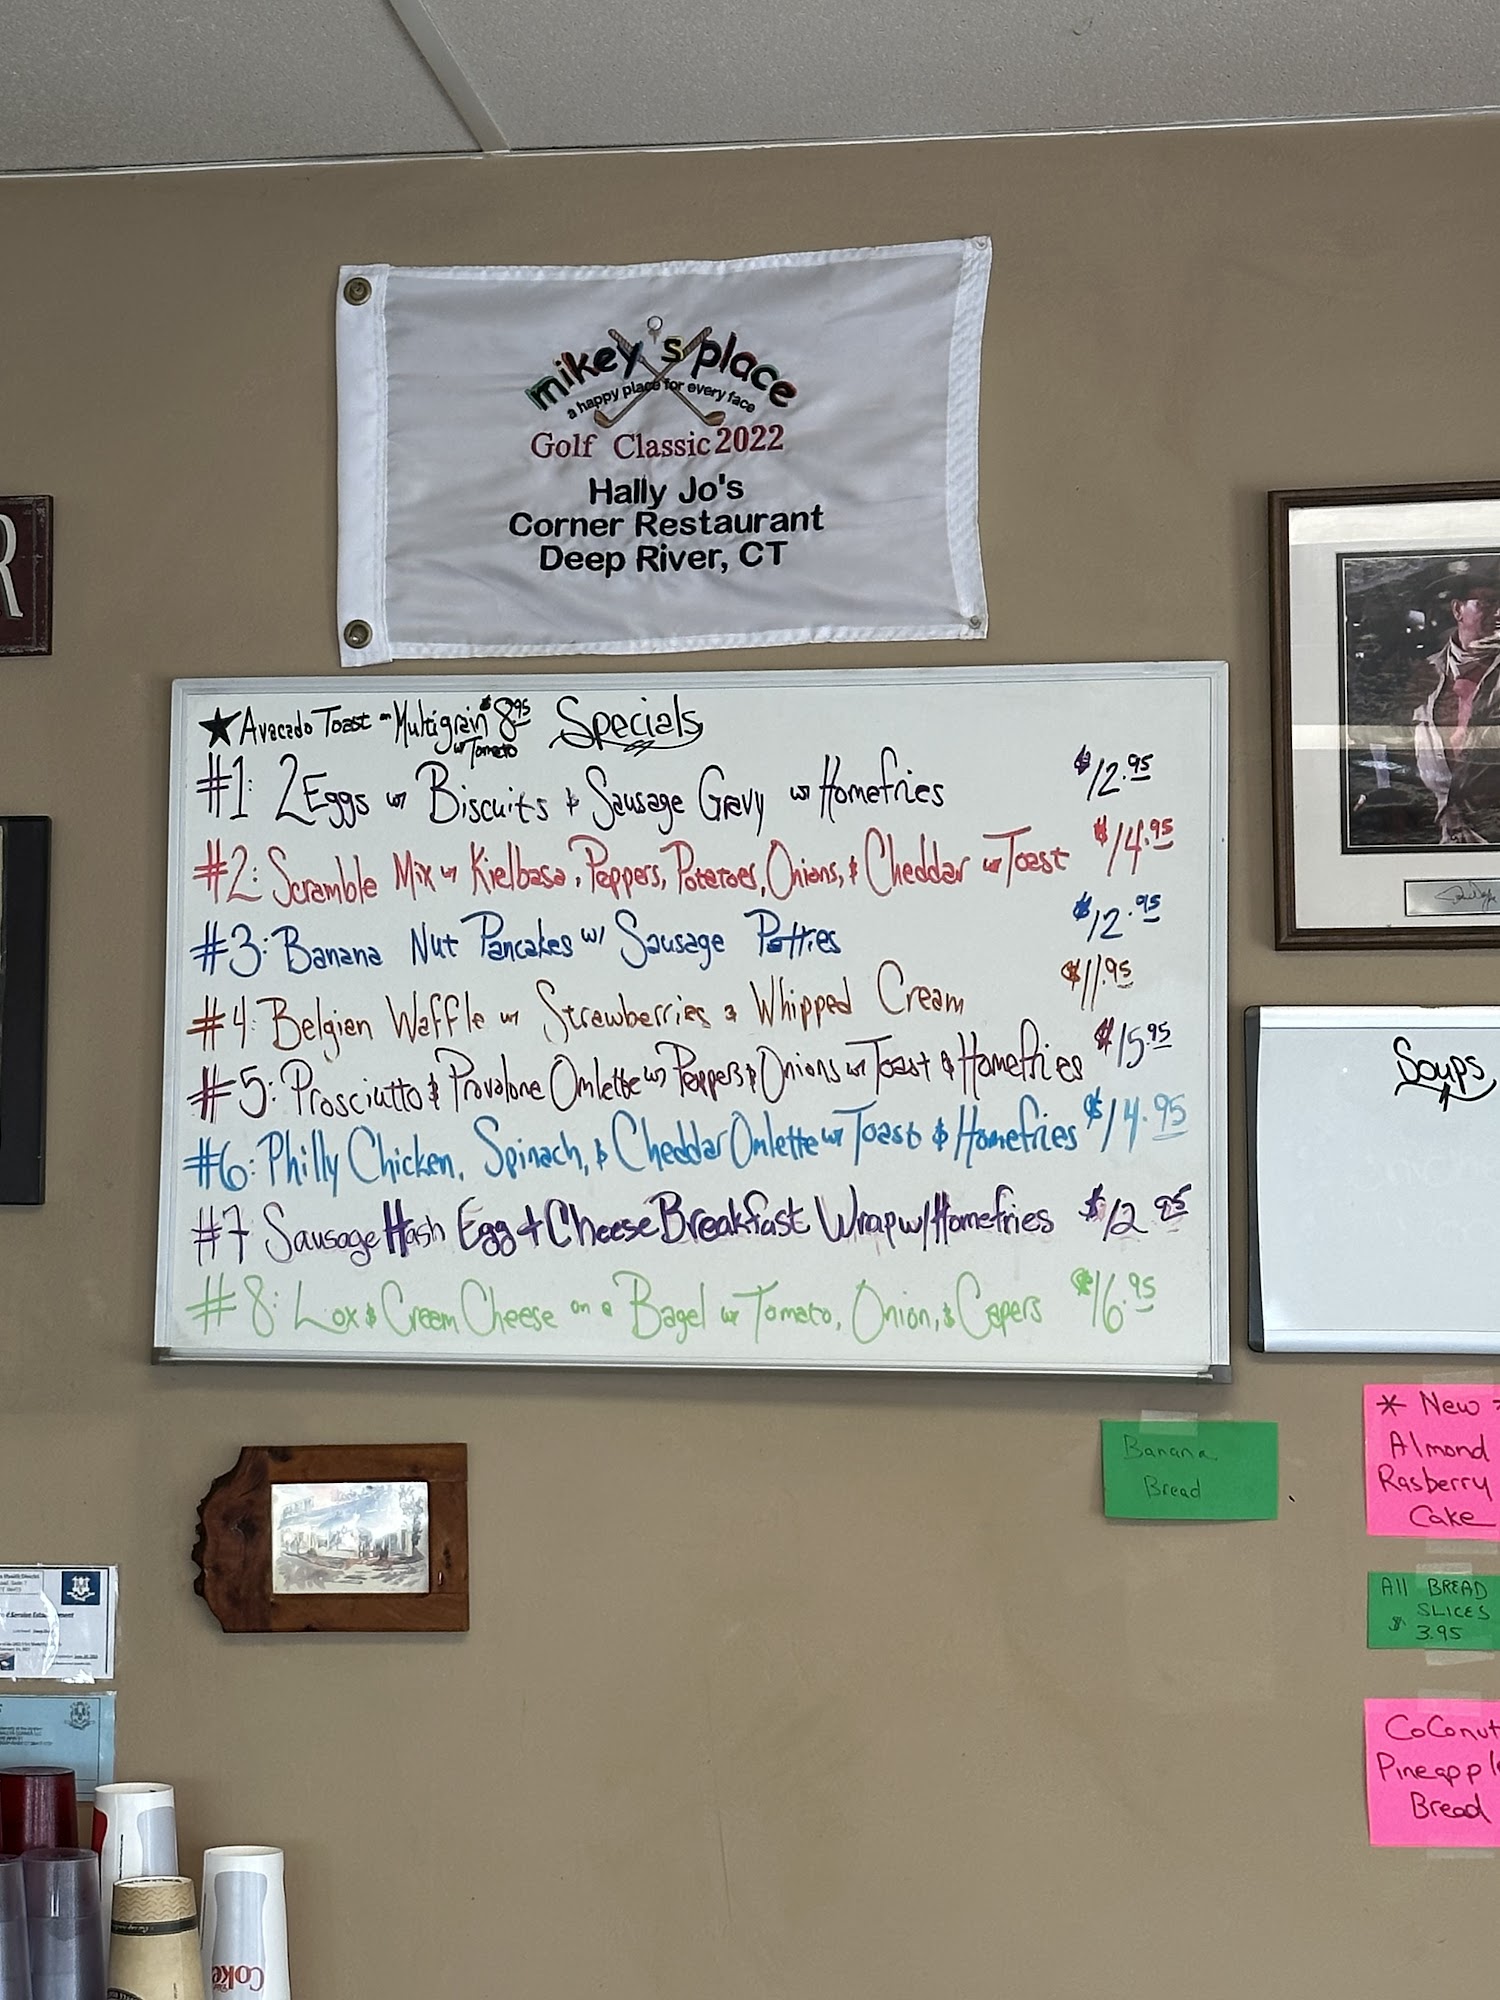 mikey's place
a happy place for every face
Golf Classic 2022
Hally Jo's
Corner Restaurant
Deep River, CT
R
★ Avacado Toast on Multigrain $8.95 Specials
w/ Tomato
#1: 2 Eggs w/ Biscuits & Sausage Gravy w/ Homefries $12.95
#2: Scramble Mix w/ Kielbasa, Peppers, Potatoes, Onions, & Cheddar w/ Toast $14.95
#3: Banana Nut Pancakes w/ Sausage Patties $12.95
#4: Belgian Waffle w/ Strawberries & Whipped Cream $11.95
#5: Prosciutto & Provolone Omlette w/ Peppers & Onions w/ Toast & Homefries $15.95
#6: Philly Chicken, Spinach, & Cheddar Omlette w/ Toast & Homefries $14.95
#7 Sausage Hash Egg + Cheese Breakfast Wrap w/ Homefries $12.95
#8: Lox & Cream Cheese on a Bagel w/ Tomato, Onion, & Capers $16.95
Soups
Banana
Bread
* New *
Almond
Rasberry
Cake
All BREAD
SLICES
$ 3.95
CoConut
Pineapple
Bread
Coke